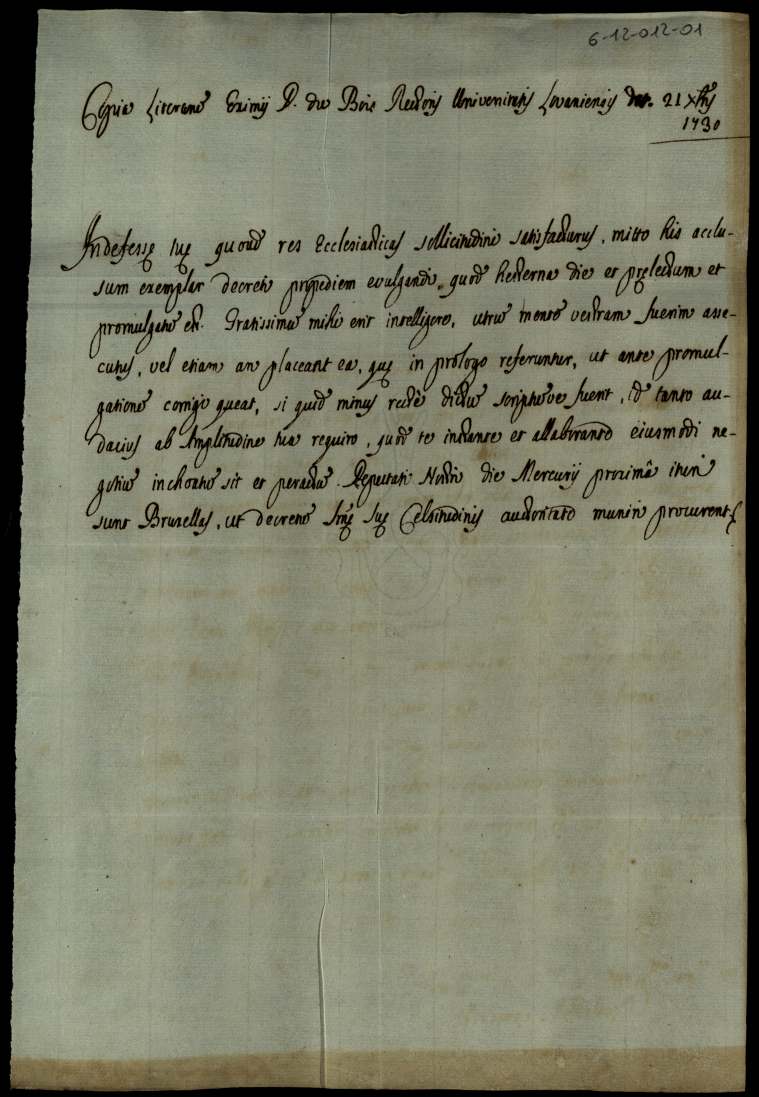 6-12-012-01
Copia Literarū Eximij D. du Bois Rectoris Universitatis Lovaniensis dat. 21 Xbris
1730
Indefessę tuę quoad res Ecclesiasticas sollicitudini satisfacturus, mitto his acclu-
sum exemplar decreti propediem evulgandi, quod hesterna die et pręlectum et
promulgatū est. Gratissimū mihi erit intelligere, utrū mentē vestram fuerim asse-
cutus, vel etiam an placeant ea, quę in prologo referuntur, ut ante promul-
gationē corrigi queat, si quid minus rectè dictū scriptūve fuerit, id tanto au-
dacius ab Amplitudine tua requiro, quod te instante et allaborante eiusmodi ne-
gotiū inchoatū sit et peractū. Deputati Nostri die Mercurij proximâ ituri
sunt Bruxellas, ut decretū Srmę Suę Celsitudinis auctoritate muniri procurent